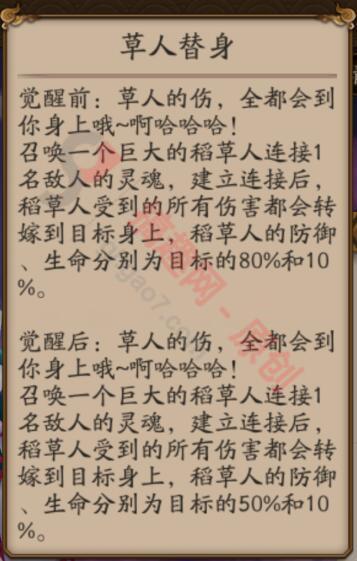 草人替身
觉醒前：草人的伤，全都会到
你身上哦~啊哈哈哈！
召唤一个巨大的稻草人连接1
名敌人的灵魂，建立连接后，
稻草人受到的所有伤害都会转
嫁到目标身上，稻草人的防御
、生命分别为目标的80%和10
%。
觉醒后：草人的伤，全都会到
你身上哦~啊哈哈哈！
召唤一个巨大的稻草人连接1
名敌人的灵魂，建立连接后，
稻草人受到的所有伤害都会转
嫁到目标身上，稻草人的防御
、生命分别为目标的50%和10
%。